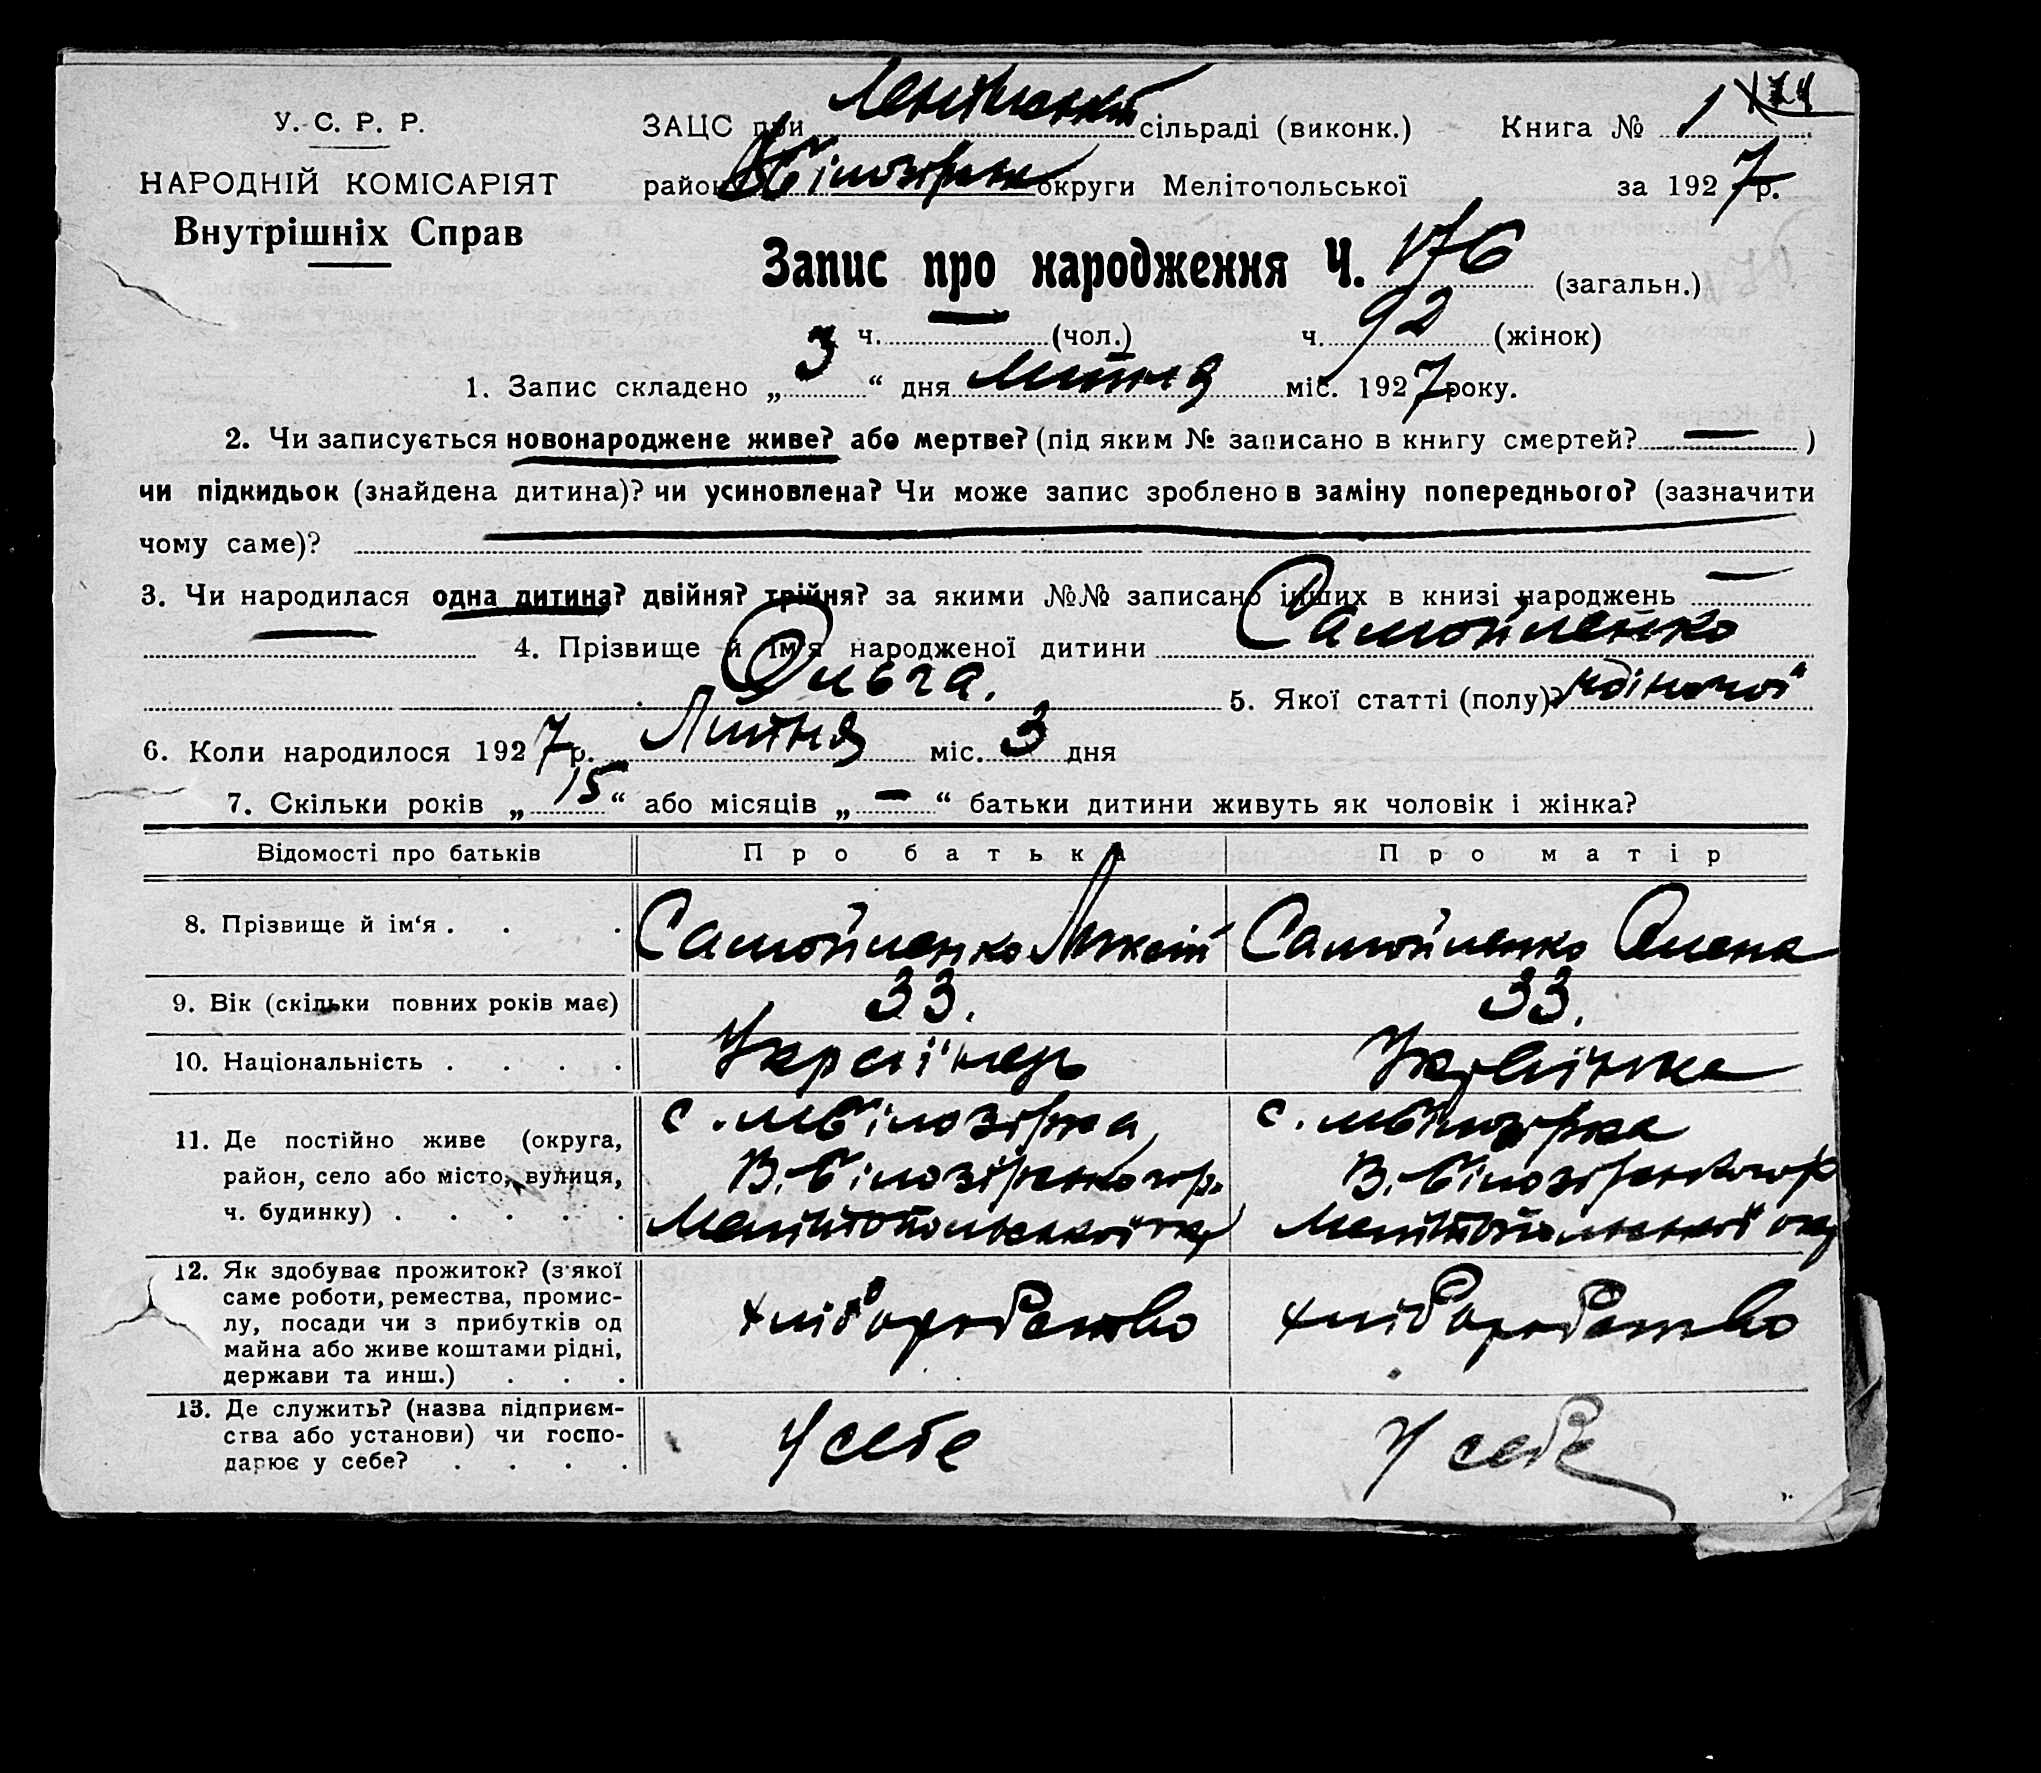 У.-С. Р. Р.
НАРОДНІЙ КОМІСАРІЯТ
Внутрішніх Справ
ЗАЦС при сільраді (виконк.) Книга № 1 174
район округи Мелітопольської за 1927 р.
Запис про народження Ч. 176 (загальн.)
ч. — (чол.) ч. 92 (жінок)
1. Запис складено „ 3 “ дня липня міс. 1927 року.
2. Чи записується новонароджене живе? або мертве? (під яким № записано в книгу смертей? — )
чи підкидьок (знайдена дитина)? чи усиновлена? Чи може запис зроблено в заміну попереднього? (зазначити
чому саме)? —
3. Чи народилася одна дитина? двійня? трійня? за якими №№ записано інших в книзі народжень —
— 4. Прізвище й ім'я народженої дитини Самойленко
Ольга. 5. Якої статті (полу)? жіночої
6. Коли народилося 1927 р. Липня міс. 3 дня
7. Скільки років „ 15 “ або місяців „ — “ батьки дитини живуть як чоловік і жінка?
Відомості про батьків Про батька Про матір
8. Прізвище й ім‘я . . . Самойленко Самойленко Олена
9. Вік (скільки повних років має) 33. 33.
10. Національність . . . . Українець Українка
11. Де постійно живе (округа,
район, село або місто, вулиця,
ч. будинку) . . . . .
с. мБілозірка
В. Білозірського р.
Мелітопольської окр
с. мБілозірка
В. Білозірського р
Мелітопольської окр
12. Як здобуває прожиток? (з'якої
саме роботи, ремества, промис-
лу, посади чи з прибутків од
майна або живе коштами рідні,
держави та инш.) . . .
хліборобство хліборобство
13. Де служить? (назва підприєм-
ства або установи) чи госпо-
дарює у себе? . . . .
У себе У себе